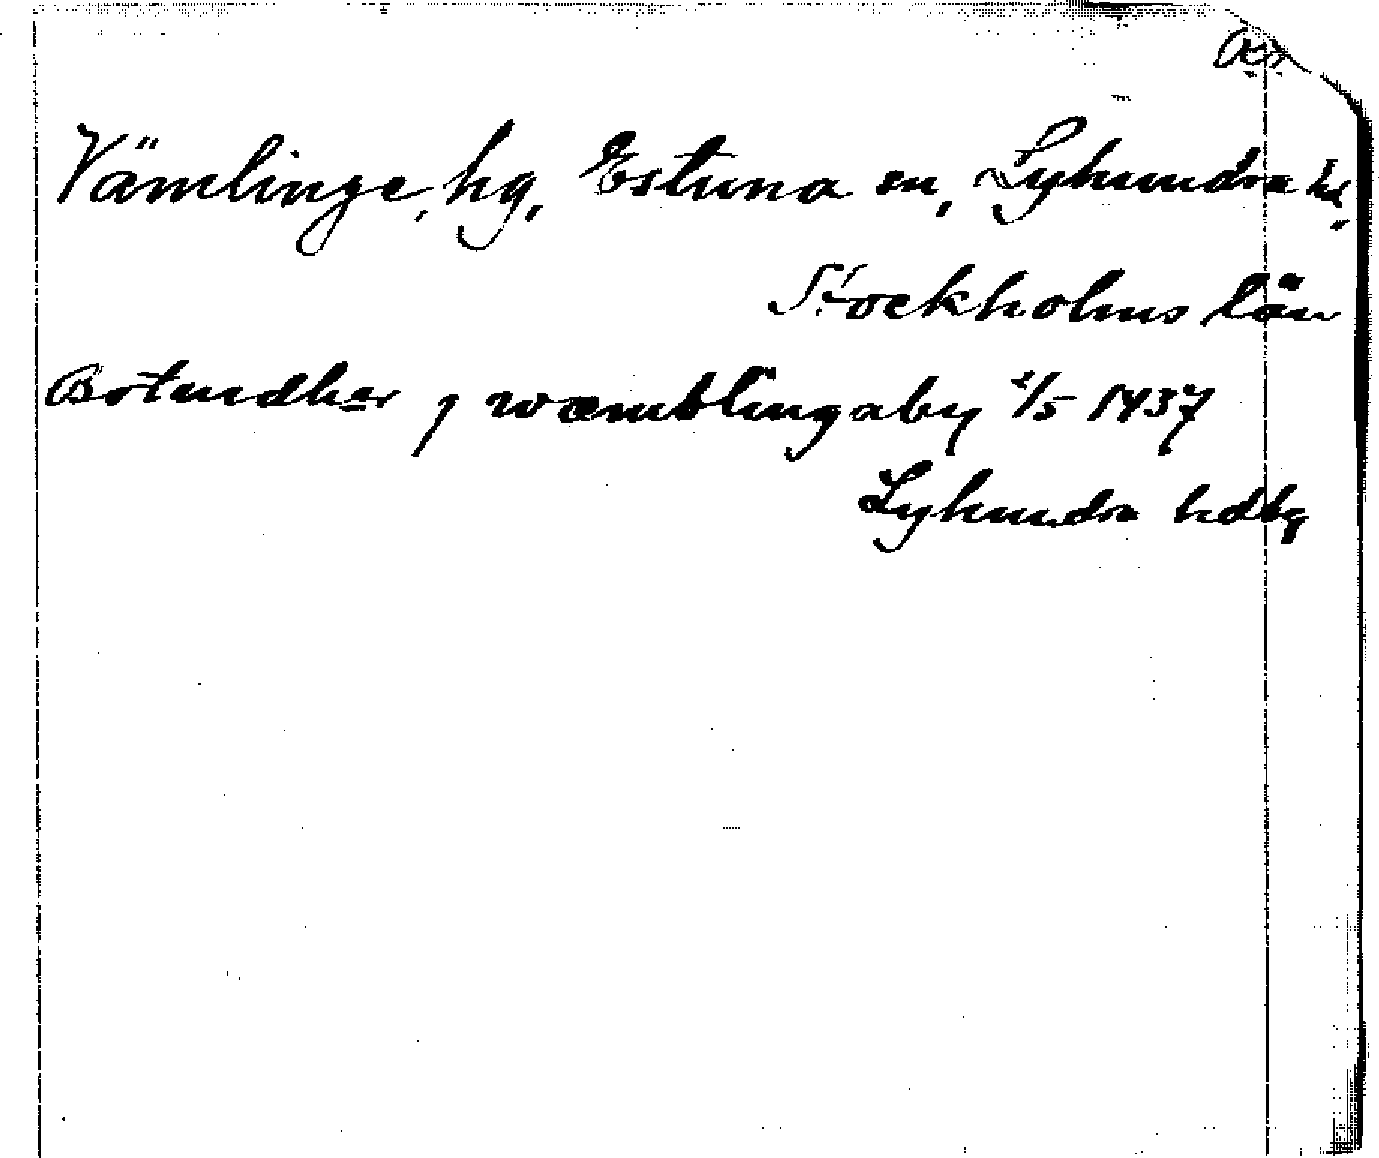 Vämlinge, hg, Estuna sn, Lyhundra hd,
Stockholms län
Botundher j wæmblingaby 1/5 1437
Lyhundra hdbg